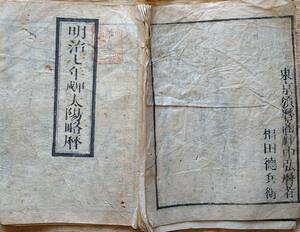 明治七年甲戌太陽略暦
東京頒暦商社中弘暦者
樹田德兵衛